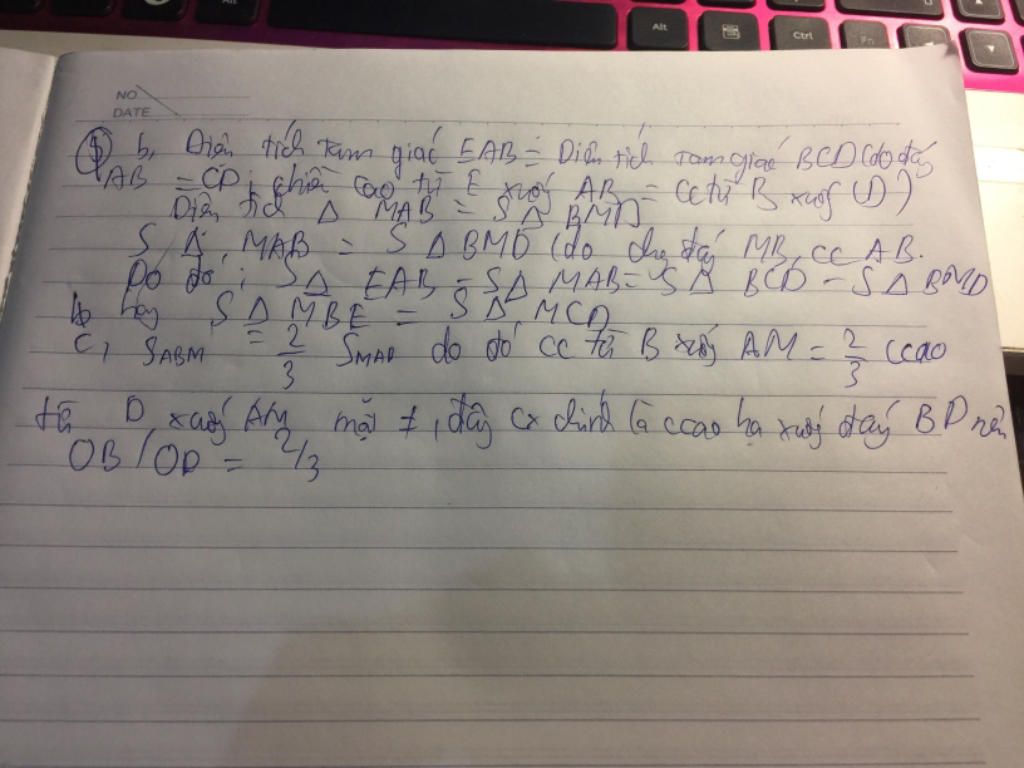 Alt
Ctrl
Fn
NO
DATE
b, Diện tích tam giác EAB = Diện tích tam giác BCD (do đáy
AB = CD; chiều cao từ E xuống AB = cc từ B xuống CD)
Diện tích Δ MAB = S Δ BMD
S Δ MAB = S Δ BMD (do chg đáy MB, cc AB.
Do đó: S Δ EAB - S Δ MAB = S Δ BCD - S Δ BMD
hay S Δ MBE = S Δ MCD
c, SABM = 2/3 SMAD do đó cc từ B xuống AM = 2/3 ccao
từ D xuống AM mặt ≠, đây cx chính là ccao hạ xuống đáy BD nên
OB/OD = 2/3